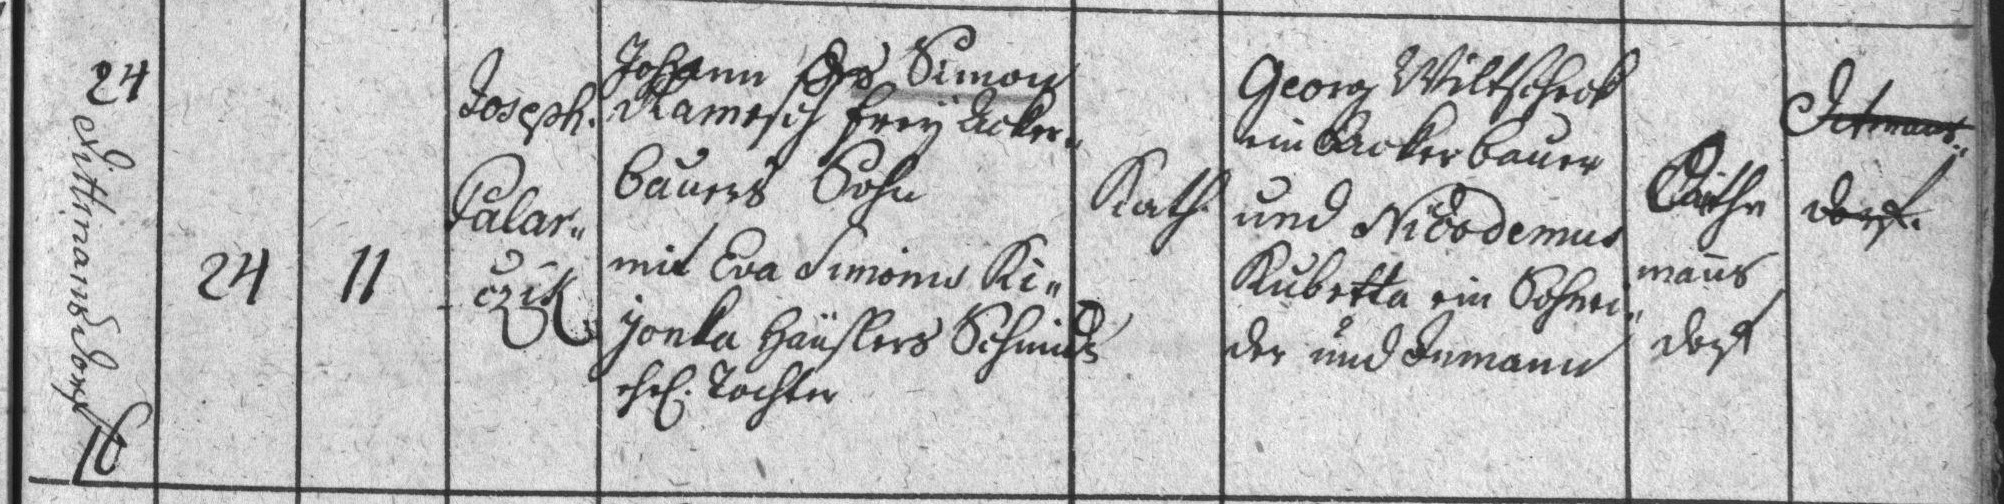 24
Dittmansdorf
16
24
11
Joseph.
Palar„
czik
Johann des Simon
Kamesch freÿ Acker„
bauers Sohn
mit Eva Simons Ki„
jonka Häuslers Schmids
ehel. Tochter
Kath.
Georg Wiltscheck
ein Ackerbauer
und Nicodemus
Kubetta ein Schnei„
der und Inmann
manns
dorf
dorf.